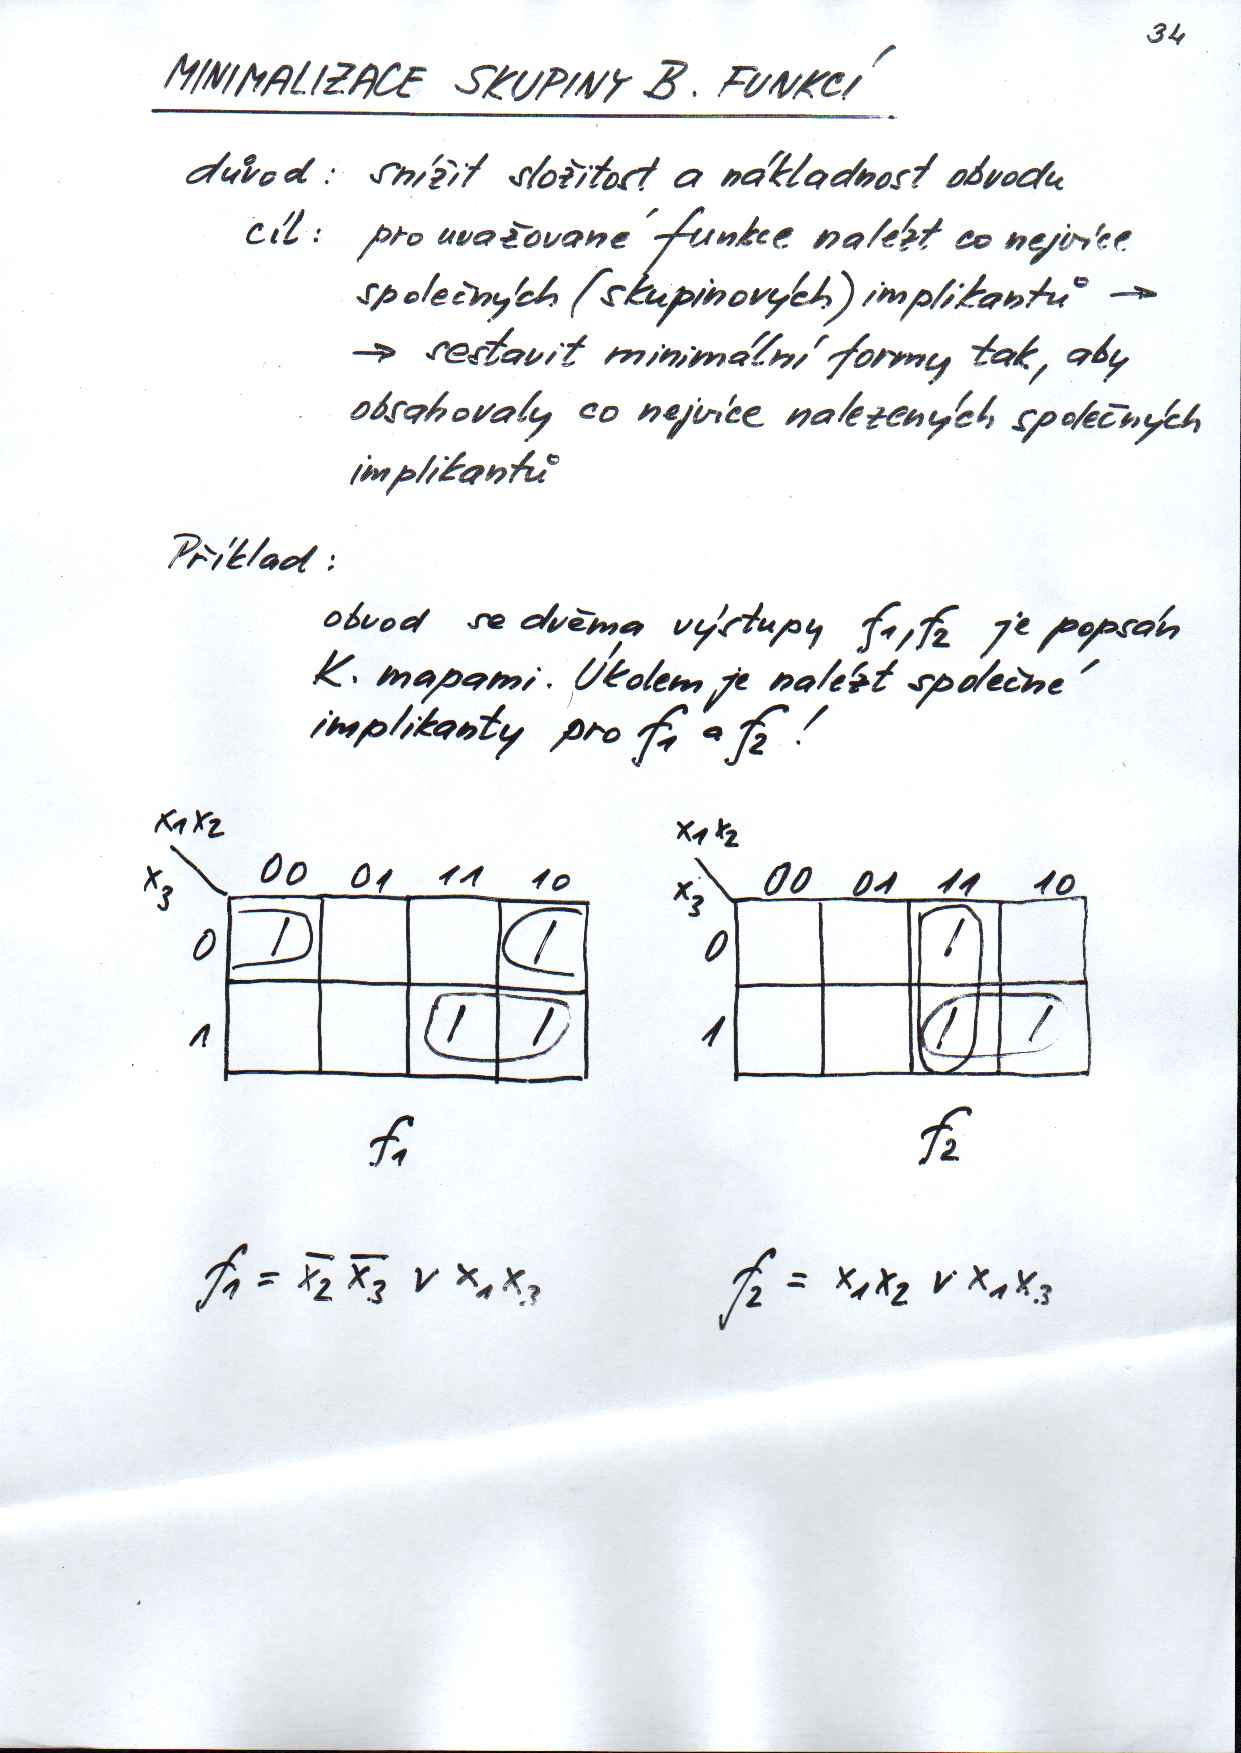 34
MINIMALIZACE SKUPINY B. FUNKCÍ
důvod: snížit složitost a nákladnost obvodu
cíl: pro uvažované funkce nalézt co nejvíce
společných (skupinových) implikantů →
→ sestavit minimální formy tak, aby
obsahovaly co nejvíce nalezených společných
implikantů
Příklad:
obvod se dvěma výstupy f₁, f₂ je popsán
K. mapami. Úkolem je nalézt společné
implikanty pro f₁ a f₂!
x₁x₂
x₃ 00 01 11 10
0 1 1
1 1 1
f₁
x₁x₂
x₃ 00 01 11 10
0 1
1 1 1
f₂
f₁ = x̄₂ x̄₃ v x₁x₃
f₂ = x₁x₂ v x₁x₃